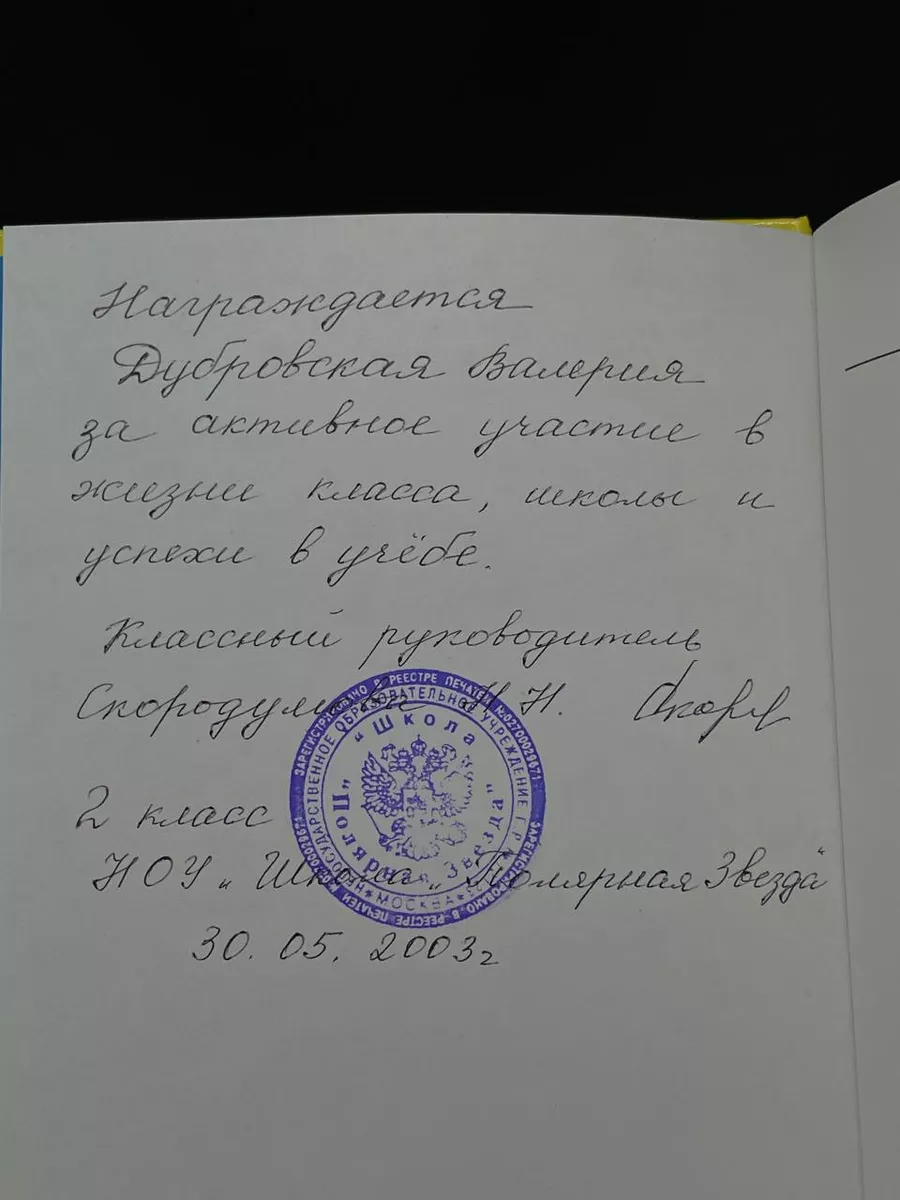 Награждается
Дубровская Валерия
за активное участие в
жизни класса, школы и
успехи в учёбе.
Классный руководитель
Скородумова Н.Н. Скор
2 класс
НОУ „Школа „Полярная Звезда"
30.05.2003г
ЗАРЕГИСТРИРОВАНО В РЕЕСТРЕ ПЕЧАТЕЙ
НЕГОСУДАРСТВЕННОЕ ОБРАЗОВАТЕЛЬНОЕ УЧРЕЖДЕНИЕ
"Школа
"Полярная Звезда"
МОСКВА